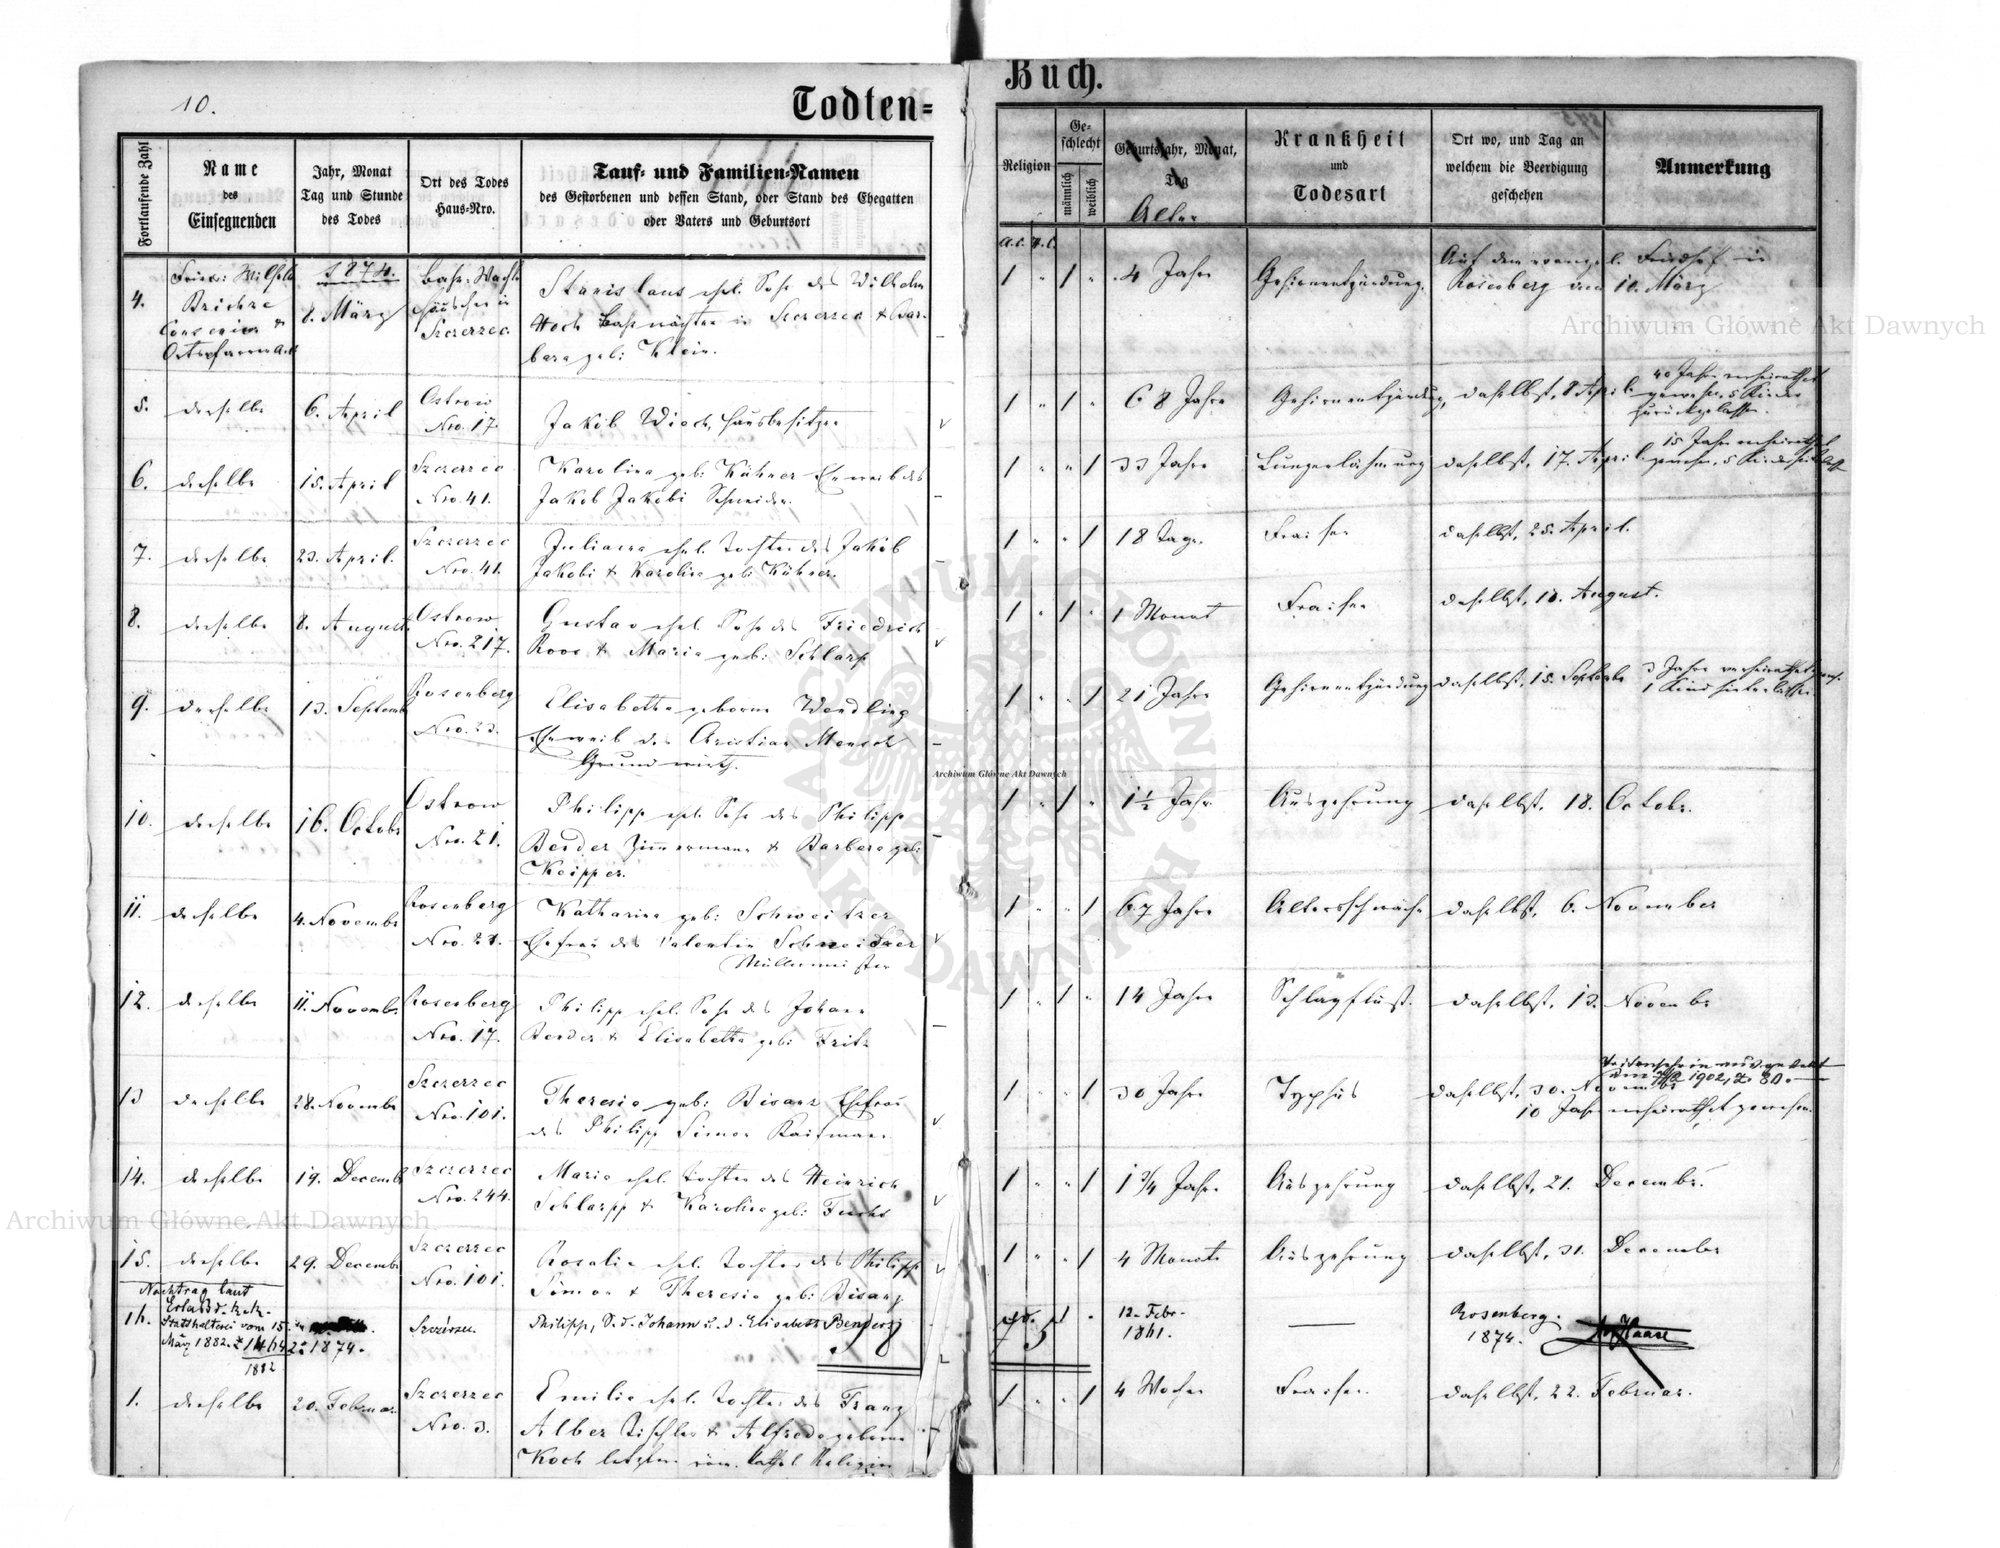 10.
Todten=
Buch.
Fortlaufende Zahl
Name
des
Einsegnenden
Jahr, Monat
Tag und Stunde
des Todes
Ort des Todes
Haus-Nro.
Tauf- und Familien-Namen
des Gestorbenen und dessen Stand, oder Stand des Ehegatten
oder Vaters und Geburtsort
Religion
Ge-
schlecht
männlich
weiblich
Geburtsjahr, Monat,
Tag
Alter
Krankheit
und
Todesart
Ort wo, und Tag an
welchem die Beerdigung
geschehen
Anmerkung
A.C. H.C.
4.
1874.
8. März
Szczerzec
Stanislaus ehel. Sohn des Wilhelm
Hoch Bahnwächter in Szczerzec & Bar-
bara geb: Klein.
1 " 1 " 4 Jahre
Gehirnentzündung.
Auf dem evangel. Friedhof in
Rosenberg am 10. März
5. derselbe
6. April
Ostrow
Nro. 17.
Jakob Wiech, Hausbesitzer
1 " 1 " 68 Jahre
Gehirnentzündung, daselbst, 8 April.
40 Jahre verheirathet
gewesen, 5 Kinder
zurückgelassen.
6. derselbe
15. April
Szczerzec
Nro. 41.
Karolina geb: Kühner Eheweib des
Jakob Jakobi Schneider.
1 " " 1 33 Jahre
Lungenlähmung
daselbst, 17. April.
15 Jahre verheirathet
gewesen, 5 Kinder
7. derselbe
23. April.
Szczerzec
Nro. 41.
Juliana ehel. Tochter des Jakob
Jakobi & Karolina geb: Kühner.
1 " " 1 18 Tage.
Fraisen
daselbst, 25. April.
8. derselbe
8. August.
Ostrow
Nro. 217.
Gustav ehel. Sohn des Friedrich
Roos & Maria geb: Schlarp
1 " 1 " 1 Monat
Fraisen
daselbst, 10. August.
9. derselbe
13. Septemb
Rosenberg
Nro. 23.
Elisabetha geborne Wendling
Eheweib des Christian Mensch
Grundwirth.
1 " " 1 21 Jahre
Gehirnentzündung
daselbst, 15. Septembr
3 Jahre verheirathet gewes.
1 Kind hinterlassen.
10. derselbe
16. Octobr
Ostrow
Nro. 21.
Philipp ehel. Sohn des Philipp
Bender Zimmermann & Barbara geb:
Keipper.
1 " 1 " 1½ Jahr
Auszehrung
daselbst, 18. Octobr.
11. derselbe
4. Novembr
Rosenberg
Katharina geb: Schweitzer
Ehefrau des Valentin Schneider
Müllermeister
1 " " 1 67 Jahre
Altersschwäche
daselbst, 6. November
12. derselbe
11. Novembr.
Rosenberg
Nro. 17.
Philipp ehel. Sohn des Johann
Bender & Elisabetha geb: Fritz
1 " 1 " 14 Jahre
Schlagfluß.
daselbst, 13. Novembr
13 derselbe
28. Novembr
Szczerzec
Nro. 101.
Theresia geb: Bisanz Ehefrau
des Philipp Simon
1 " " 1 30 Jahre
Typhus
daselbst, 30. Novembr
1902, Z. 80.
10 Jahre verheirathet gewesen.
14. derselbe
19. Decemb
Szczerzec
Nro. 244.
Maria ehel. Tochter des Heinrich
Schlarpp & Karolina geb: Fuchs
1 " " 1 1¾ Jahre
Auszehrung
daselbst, 21. Decembr.
15. derselbe
29. Decemb
Szczerzec
Nro. 101.
Rosalia ehel. Tochter des Philipp
Simon & Theresia geb: Bisanz
1 " " 1 4 Monate
Auszehrung
daselbst, 31. December
Nachtrag laut
16.
Erlaß d. k.k.
Statthalterei vom 15.
März 1882. Z 14642
1882
1874.
Szczerzec.
Philipp, S. d. Johann u. d. Elisabeth Bender
12. Febr.
1861.
Rosenberg.
1874.
Haase
1. derselbe
20. Februar
Szczerzec
Nro. 3.
Emilie ehel. Tochter des Franz
Alber Tischler & Alfreda geborne
Koch letztere röm. kathol. Religion
1 " " 1 4 Wochen
Fraisen.
daselbst, 22. Februar.
Archiwum Główne Akt Dawnych
Archiwum Główne Akt Dawnych
Archiwum Główne Akt Dawnych
ARCHIWUM GŁÓWNE AKT DAWNYCH